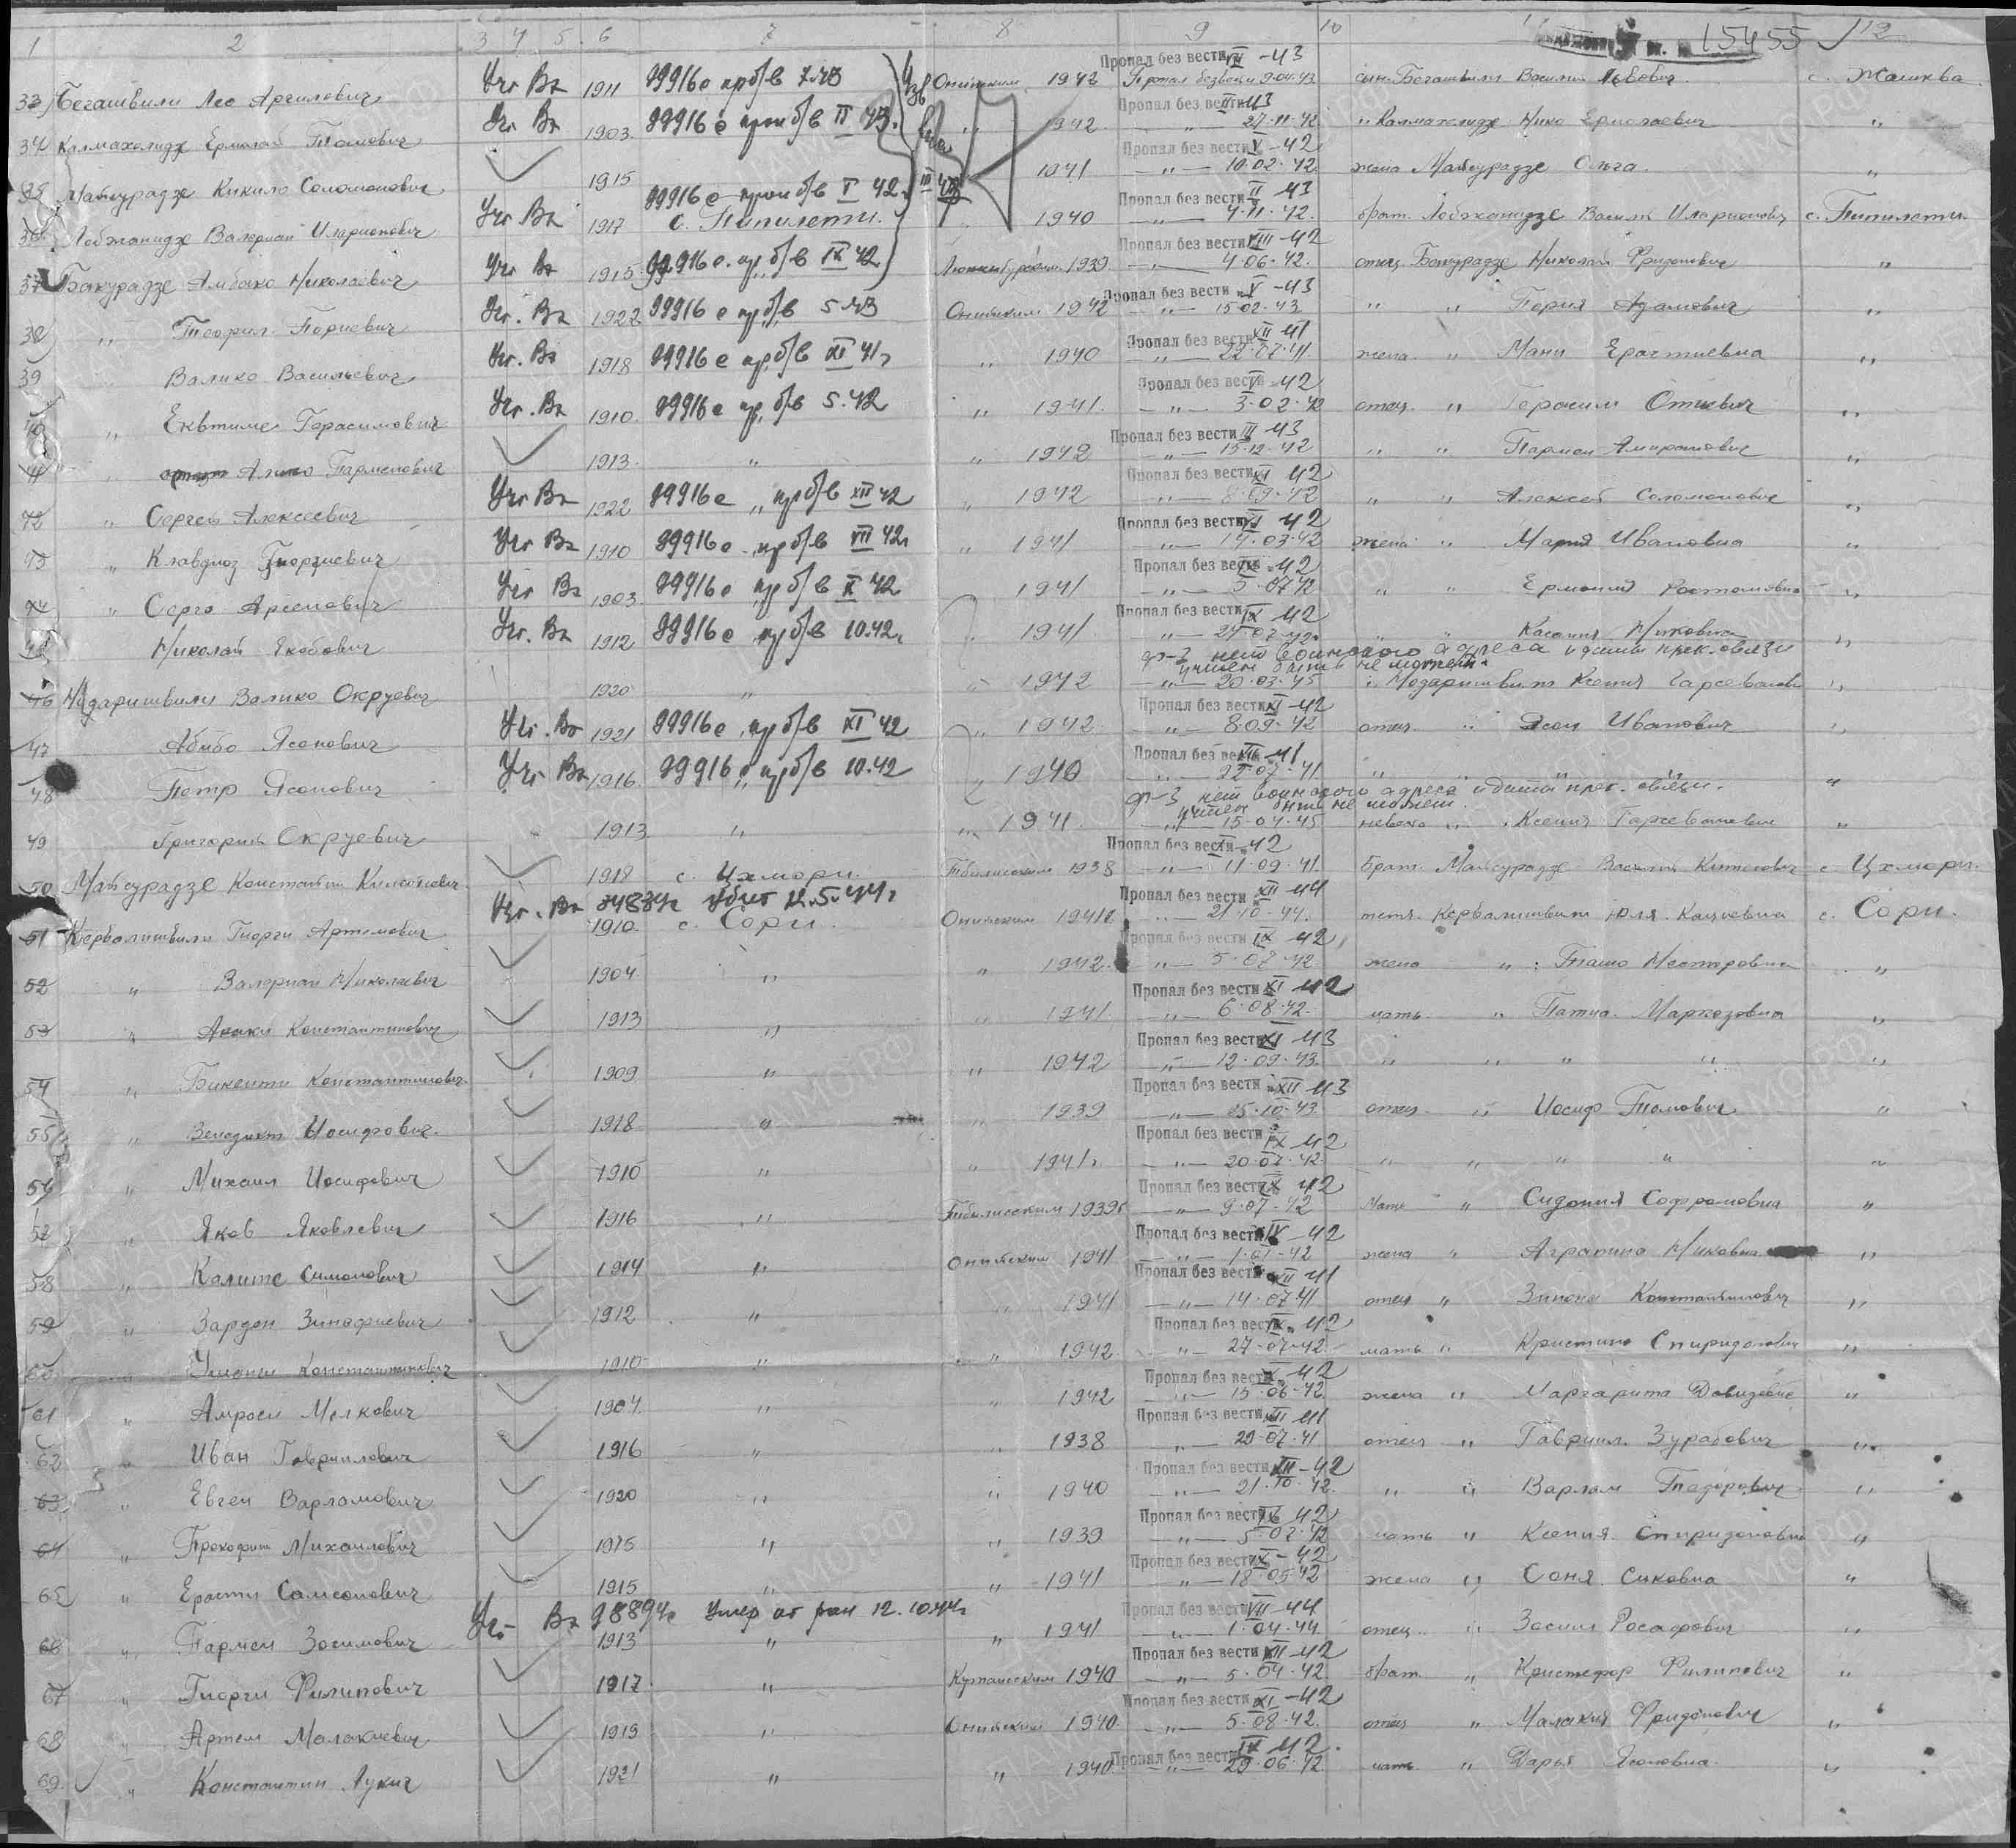 1 2 3 4 5 6 7 8 9 10 11 12
15455
33 Бегашвили Лео Арчилович Уч. Вк 1911 99916с пр б/в 7.43 Онийским 1942 Пропал без вести VII-43 Пропал без вести 9.04.43 сын Бегашвили Василий Львович с. Жашква
34 Калмахелидзе Ермолай Томович Уч. Вк 1903 99916с проп б/в II 43. " 1942 Пропал без вести II 43 " 27.11.42 " Калмахелидзе Нико Ермолаевич "
35 Майсурадзе Кикило Соломонович 1915 1941 Пропал без вести V-42 " 10.02.42 жена Майсурадзе Ольга "
36 Лобжанидзе Валериан Иларионович Уч. Вк 1917 99916с проп б/в V 42. с. Пипилети. " 1940 Пропал без вести II 43 " 4.11.42. брат Лобжанидзе Василий Иларионович с. Пипилети
37 Бакурадзе Амбако Николаевич Уч. Вк 1915 99916с пр б/в IX 42 1939 Пропал без вести VIII-42 " 4.06.42. отец Бакурадзе Николай Фридонович "
38 " Теофил Пориевич Уч. Вк 1922 99916с пр б/в 5.43 Онийским 1942 Пропал без вести V-43 " 15.02.43 " " Пория Адамович "
39 Валико Васильевич Уч. Вк 1918 99916с пр б/в XI 41г " 1940 Пропал без вести XII 41 " 22.07.41. жена " Мани Ерастиевна "
40 " Еквтиме Герасимович Уч. Вк 1910 99916с пр б/в 5.42 " 1941. Пропал без вести V-42 " 3.02.42 отец " Герасим Отиевич "
41 " Алико Парменович 1913 " " 1942 Пропал без вести III 43 " 15.12.42 " " Пармен Амиранович "
42 " Сергей Алексеевич Уч. Вк 1922 99916с " пр б/в XII 42 " 1942 Пропал без вести XI 42 " 8.09.42 " " Алексей Соломонович "
43 " Клавдиоз Георгиевич Уч. Вк 1910 99916с пр б/в VII 42г " 1941 Пропал без вести VI 42 " 14.03.42 жена " Мария Ивановна "
44 " Серго Арсенович Уч. Вк 1903 99916с пр б/в X 42 1941 Пропал без вести IX-42 " 5.07.42 " " Ермония Ростомовна "
45 Николай Якобович Уч. Вк 1912 99916с пр б/в 10.42г " 1941 Пропал без вести IX 42 " 27.07.42 " " Касания Никовна "
ф-3 нет воинского адреса и даты прек. связи
учтен быть не может.
46 Модаришвили Валико Окруевич 1920 " " 1942 " 20.03.45 " Модаришвили Ксения Гарсевановна "
47 Абибо Ясонович Уч. Вк 1921 99916с пр б/в XI 42 " 1942. Пропал без вести XI-42 " 8.09.42 отец " Ясон Иванович "
48 Петр Ясонович Уч. Вк 1916 99916с " пр б/в 10.42 " 1940 Пропал без вести XII-41 " 22.07.41 " " " " "
ф-3 нет воинского адреса и даты прек. связи.
учтен быть не может.
49 Григорий Окруевич 1913 " " 1941 " 15.04.45 невеста " Ксения Гарсевановна "
50 Майсурадзе Константин 1918 с. Цхмори. Тбилисским 1938 Пропал без вести -42 " 11.09.41. брат. Майсурадзе Василий с. Цхмори.
51 Кербалишвили Гиорги Артемович Уч. Вк 84884с Убит 12.5.44г 1910 с. Сори. Онийским 1941г Пропал без вести XII 44 " 21.10.44. тетя. Кербалишвили Юля Кациевна с. Сори.
52 " Валериан Николаевич 1904 " " 1942. Пропал без вести IX 42 " 5.07.42. жена " Ташо Несторовна "
53 " Акаки Константинович 1913 " " 1941. Пропал без вести XI 42 " 6.08.42. мать. " Патиа. Маркозовна "
54 " Бикенти Константинович 1909 " " 1942 Пропал без вести XI 43 " 12.09.43. " " " " "
55 " Венедикт Иосифович 1918 " " 1939 Пропал без вести XII 43 " 25.10.43. отец " Иосиф Томович "
56 " Михаил Иосифович 1910 " " 1941г Пропал без вести IX 42 " 20.07.42. " " " " "
57 " Яков Яковлевич 1916 " Тбилисским 1939г Пропал без вести IX 42 " 9.07.42 мать " Сидония Софромовна "
58 " Калите Симонович 1914 " Онийским 1941 Пропал без вести IV-42 " 1.01.42 жена " Аграпина Никовна "
59 " Зарден Зинафиевич 1912 " " 1941 Пропал без вести XII 41 " 14.07.41 отец " Константинович "
60 Константинович 1910 " " 1942 Пропал без вести IX 42 " 27.07.42 мать " Кристина Спиридоновна "
61 " Амроси Мелкович 1904 " " 1942 Пропал без вести X-42 " 15.06.42 жена " Маргарита Давидовна "
62 " Иван Гавриилович 1916 " " 1938 Пропал без вести XII 41 " 29.07.41 отец " Гавриил. Зурабович "
63 " Евген Варламович 1920 " " 1940 Пропал без вести XII-42 " 21.10.42. " " Варлам Тадорович "
64 " Прокофий Михайлович 1915 " " 1939 Пропал без вести IX 42 " 5.07.42 мать " Ксения Спиридоновна "
65 " Ерасти Самсонович 1915 " " 1941 Пропал без вести X-42 " 18.05.42 жена " Соня. Сиковна "
66 " Пармен Зосимович Уч. Вк 98894с Умер от ран 12.10.44г 1913 " " 1941 Пропал без вести VII-44 " 1.04.44 отец " Зосим Росафович "
67 " Гиорги Филипович 1917 " Кутаисским 1940 Пропал без вести VII-42 " 5.04.42. брат " Кристефор Филипович "
68 " Артем Малакиевич 1919 " Онийским 1940. Пропал без вести XI-42 " 5.08.42. отец " Малакия Фридонович "
69. " Константин Лукич 1921 " " 1940. Пропал без вести IX 42. " 29.06.42 мать " Дарья Ясоновна. "